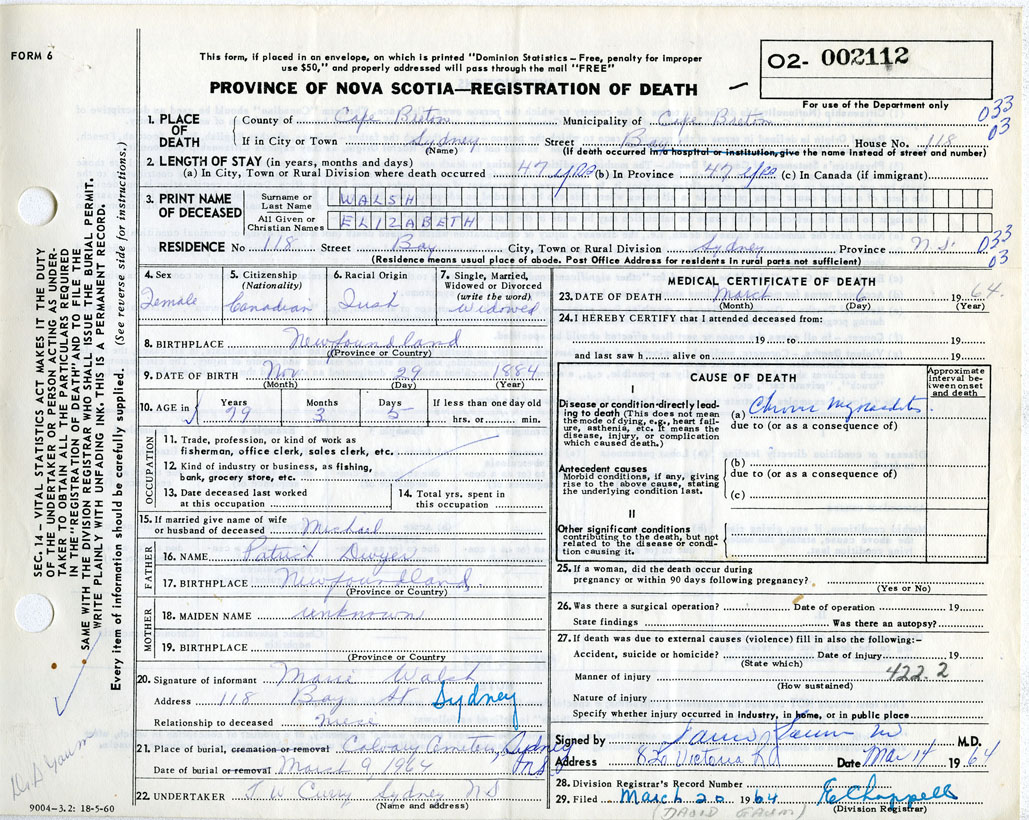 FORM 6
This form, if placed in an envelope, on which is printed "Dominion Statistics – Free, penalty for improper
use $50," and properly addressed will pass through the mail "FREE"
PROVINCE OF NOVA SCOTIA—REGISTRATION OF DEATH
O2- 002112
For use of the Department only
033
03
1. PLACE OF DEATH
County of Cape Breton Municipality of Cape Breton
If in City or Town Sydney Street Bay House No. 118
(Name) (If death occurred in a hospital or institution, give the name instead of street and number)
2. LENGTH OF STAY (in years, months and days)
(a) In City, Town or Rural Division where death occurred 47 yrs (b) In Province 47 yrs (c) In Canada (if immigrant)
3. PRINT NAME OF DECEASED
Surname or Last Name WALSH
All Given or Christian Names ELIZABETH
RESIDENCE No 118 Street Bay City, Town or Rural Division Sydney Province N.S.
033
03
(Residence means usual place of abode. Post Office Address for residents in rural parts not sufficient)
4. Sex
Female
5. Citizenship
(Nationality)
Canadian
6. Racial Origin
Irish
7. Single, Married, Widowed or Divorced
(write the word)
Widowed
8. BIRTHPLACE Newfoundland
(Province or Country)
9. DATE OF BIRTH Nov 29 1884
(Month) (Day) (Year)
10. AGE in Years Months Days If less than one day old
79 3 5 hrs. or min.
OCCUPATION
11. Trade, profession, or kind of work as
fisherman, office clerk, sales clerk, etc.
12. Kind of industry or business, as fishing,
bank, grocery store, etc.
13. Date deceased last worked
at this occupation
14. Total yrs. spent in
this occupation
15. If married give name of wife
or husband of deceased Michael
FATHER
16. NAME Patrick Dwyer
17. BIRTHPLACE Newfoundland
(Province or Country)
MOTHER
18. MAIDEN NAME unknown
19. BIRTHPLACE
(Province or Country
20. Signature of informant Marie Walsh
Address 118 Bay St Sydney
Relationship to deceased niece
21. Place of burial, cremation or removal Calvary Cemetery, Sydney
NS
Date of burial or removal March 9, 1964
22. UNDERTAKER T W Curry Sydney NS
(Name and address)
MEDICAL CERTIFICATE OF DEATH
23. DATE OF DEATH March 6 1964.
(Month) (Day) (Year)
24. I HEREBY CERTIFY that I attended deceased from:
19 to 19
and last saw h alive on 19
CAUSE OF DEATH
Approximate interval between onset and death
I
Disease or condition directly leading to death (This does not mean the mode of dying, e.g., heart failure, asthenia, etc. It means the disease, injury, or complication which caused death.)
(a) Chronic Myocarditis
due to (or as a consequence of)
Antecedent causes
Morbid conditions, if any, giving rise to the above cause, stating the underlying condition last.
(b)
due to (or as a consequence of)
(c)
II
Other significant conditions
contributing to the death, but not related to the disease or condition causing it.
25. If a woman, did the death occur during
pregnancy or within 90 days following pregnancy?
(Yes or No)
26. Was there a surgical operation? Date of operation 19
State findings Was there an autopsy?
27. If death was due to external causes (violence) fill in also the following:–
Accident, suicide or homicide? Date of injury 19
(State which)
Manner of injury 422.2
(How sustained)
Nature of injury
Specify whether injury occurred in industry, in home, or in public place
Signed by M.D.
Address 820 Victoria Rd Date Mar 14 1964
28. Division Registrar's Record Number
29. Filed March 20 1964 E Chappell
(Division Registrar)
(DAVID GAUM)
SEC. 14 – VITAL STATISTICS ACT MAKES IT THE DUTY
OF THE UNDERTAKER OR PERSON ACTING AS UNDER-
TAKER TO OBTAIN ALL THE PARTICULARS REQUIRED
IN THE "REGISTRATION OF DEATH" AND TO FILE THE
SAME WITH THE DIVISION REGISTRAR WHO SHALL ISSUE THE BURIAL PERMIT.
WRITE PLAINLY WITH UNFADING INK. THIS IS A PERMANENT RECORD.
Every item of information should be carefully supplied. (See reverse side for instructions.)
9004-3.2: 18-5-60